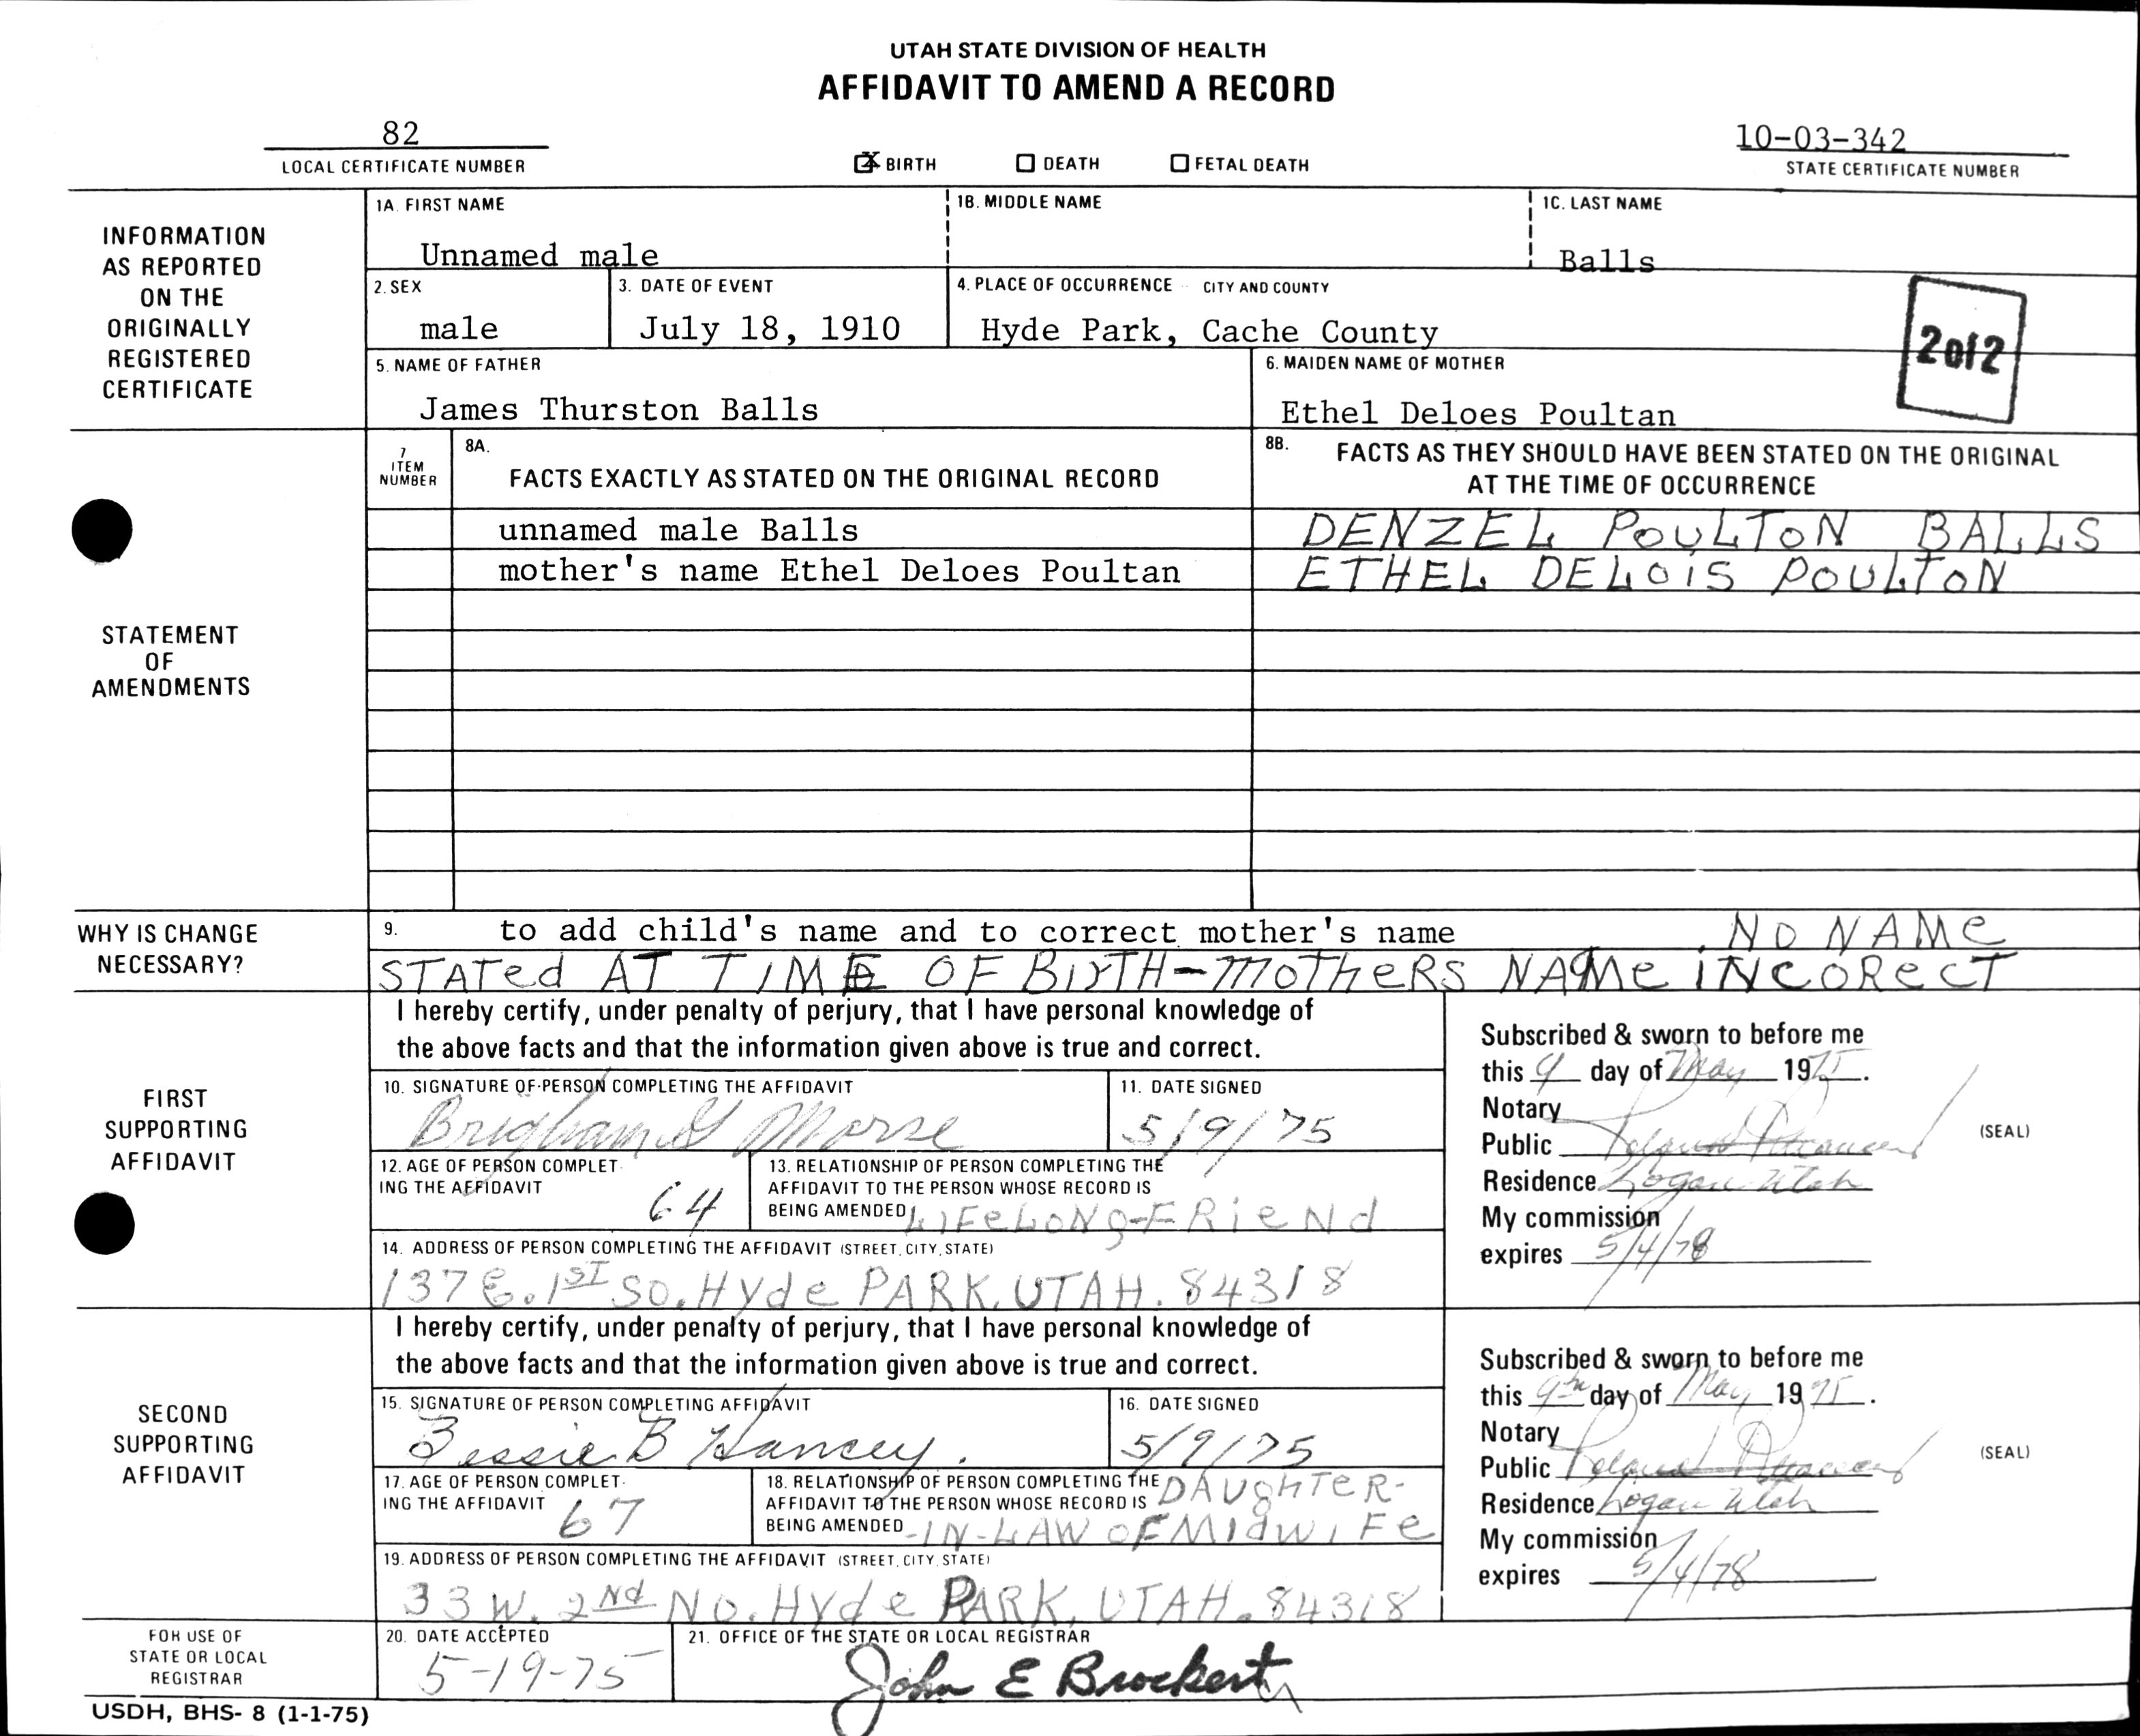 UTAH STATE DIVISION OF HEALTH
AFFIDAVIT TO AMEND A RECORD
82
LOCAL CERTIFICATE NUMBER
X BIRTH
DEATH
FETAL DEATH
10-03-342
STATE CERTIFICATE NUMBER
INFORMATION
AS REPORTED
ON THE
ORIGINALLY
REGISTERED
CERTIFICATE
1A. FIRST NAME
Unnamed male
1B. MIDDLE NAME
1C. LAST NAME
Balls
2. SEX
male
3. DATE OF EVENT
July 18, 1910
4. PLACE OF OCCURRENCE CITY AND COUNTY
Hyde Park, Cache County
2 of 2
5. NAME OF FATHER
James Thurston Balls
6. MAIDEN NAME OF MOTHER
Ethel Deloes Poultan
STATEMENT
OF
AMENDMENTS
7
ITEM
NUMBER
8A.
FACTS EXACTLY AS STATED ON THE ORIGINAL RECORD
8B. FACTS AS THEY SHOULD HAVE BEEN STATED ON THE ORIGINAL
AT THE TIME OF OCCURRENCE
unnamed male Balls
DENZEL POULTON BALLS
mother's name Ethel Deloes Poultan
ETHEL DELOIS POULTON
WHY IS CHANGE
NECESSARY?
9. to add child's name and to correct mother's name NO NAMe
STATed AT TIME OF BirTH-MOTHeRS NAMe iNCORecT
FIRST
SUPPORTING
AFFIDAVIT
I hereby certify, under penalty of perjury, that I have personal knowledge of
the above facts and that the information given above is true and correct.
10. SIGNATURE OF PERSON COMPLETING THE AFFIDAVIT
Brigham G Morse
11. DATE SIGNED
5/9/75
12. AGE OF PERSON COMPLET-
ING THE AFFIDAVIT
64
13. RELATIONSHIP OF PERSON COMPLETING THE
AFFIDAVIT TO THE PERSON WHOSE RECORD IS
BEING AMENDED LIFeLONg-FRieNd
14. ADDRESS OF PERSON COMPLETING THE AFFIDAVIT (STREET, CITY, STATE)
137 E. 1ST SO. Hyde PARK, UTAH. 84318
Subscribed & sworn to before me
this 9 day of May 1975.
Notary
Public
(SEAL)
Residence Logan Utah
My commission
expires 5/4/78
SECOND
SUPPORTING
AFFIDAVIT
I hereby certify, under penalty of perjury, that I have personal knowledge of
the above facts and that the information given above is true and correct.
15. SIGNATURE OF PERSON COMPLETING AFFIDAVIT
Bessie B Hancey.
16. DATE SIGNED
5/9/75
17. AGE OF PERSON COMPLET-
ING THE AFFIDAVIT
67
18. RELATIONSHIP OF PERSON COMPLETING THE DAUgHTeR-
AFFIDAVIT TO THE PERSON WHOSE RECORD IS
BEING AMENDED -IN-LAW OF MIdWIFe
19. ADDRESS OF PERSON COMPLETING THE AFFIDAVIT (STREET, CITY, STATE)
33 W. 2Nd NO. Hyde PARK, UTAH. 84318
Subscribed & sworn to before me
this 9th day of May 1975.
Notary
Public
(SEAL)
Residence Logan Utah
My commission
expires 5/4/78
FOR USE OF
STATE OR LOCAL
REGISTRAR
20. DATE ACCEPTED
5-19-75
21. OFFICE OF THE STATE OR LOCAL REGISTRAR
John E Brockert
USDH, BHS- 8 (1-1-75)